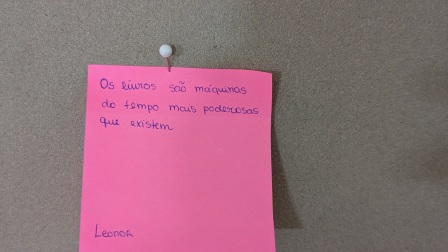 Os livros são máquinas
do tempo mais poderosas
que existem
Leonor